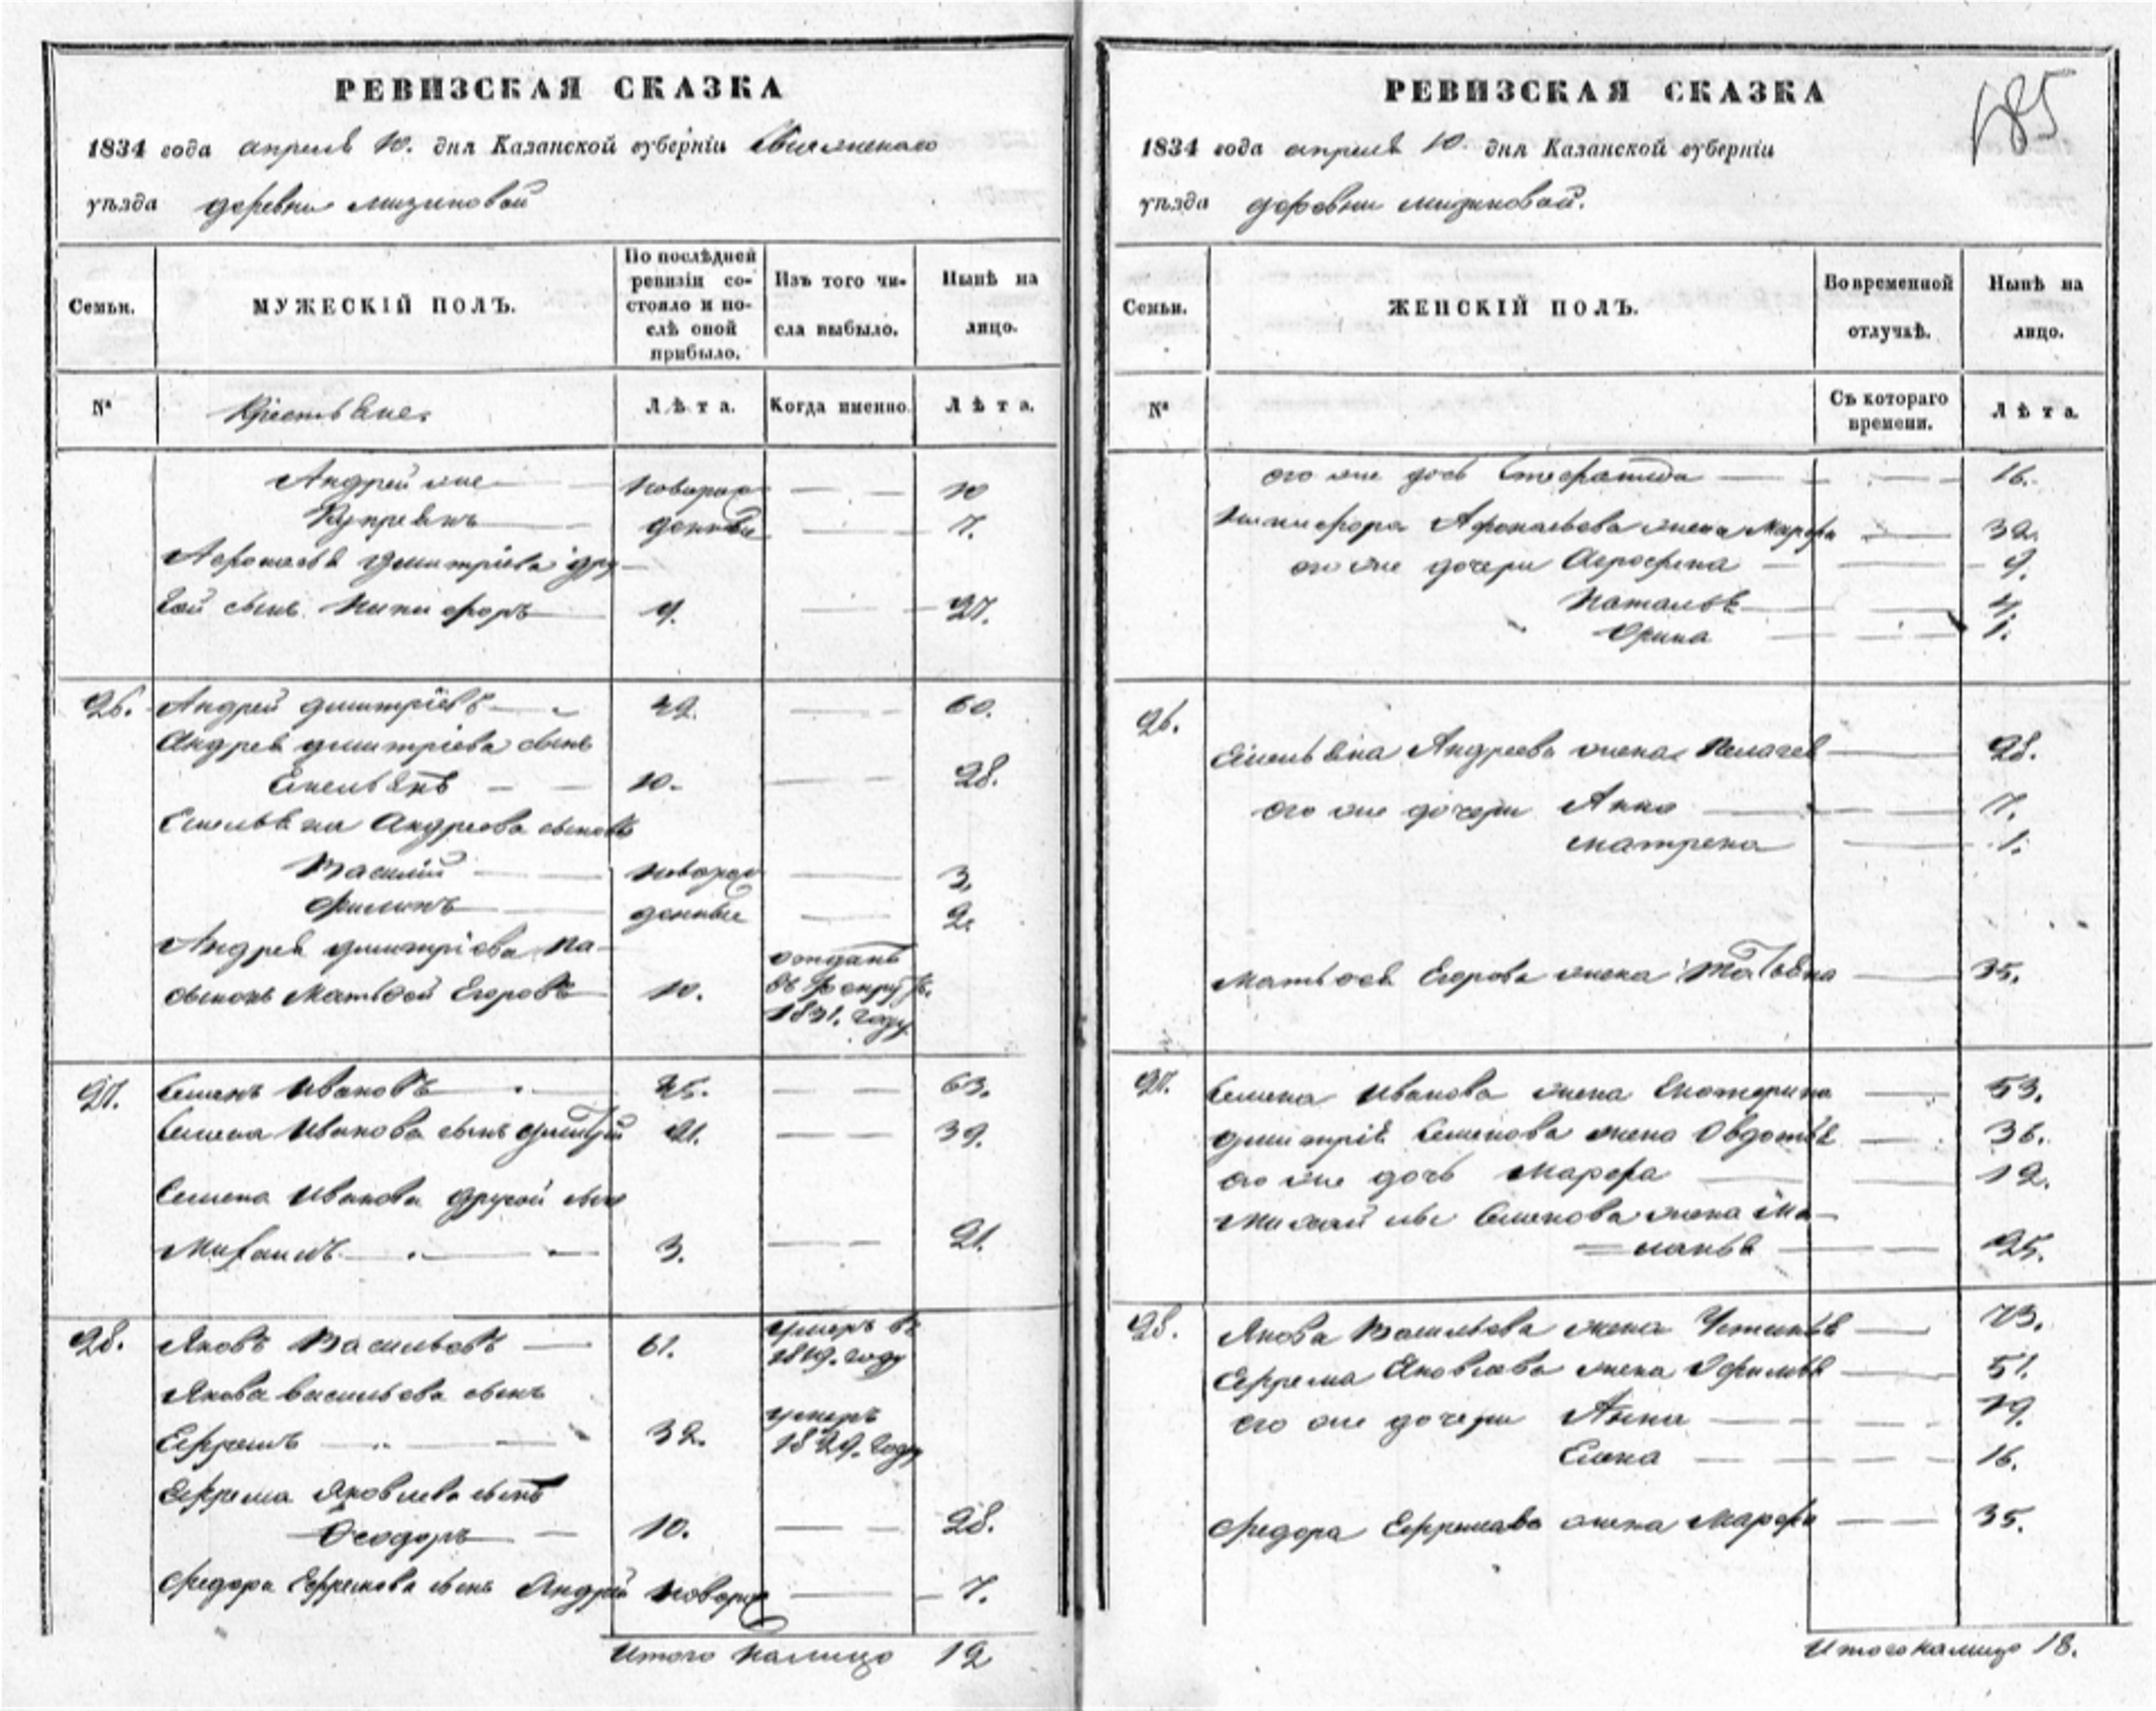 РЕВИЗСКАЯ СКАЗКА
1834 года апреля 10. дня Казанской губерніи Свияжскаго
уѣзда деревни мизиновой
Семьи.
МУЖЕСКІЙ ПОЛЪ.
По послѣдней
ревизіи со-
стояло и по-
слѣ оной
прибыло.
Изъ того чи-
сла выбыло.
Нынѣ на
лицо.
№
Крестьяне.
Лѣта.
Когда именно.
Лѣта.
Андрей же новорож 10
Купреянъ денныя 7.
Афонасья дмитріева дру-
гой сынъ Никифоръ 9. 27.
26. Андрей дмитріевъ 42. 60.
Андрея дмитріева сынъ
Емельянъ 10. 28.
Емельяна Андреева сыновья
Василій новорож 3.
Филипъ денныя 2.
Андрея дмитріева па-
сынокъ Матвей Егоровъ 10. отданъ
въ рекруты.
1831. году
27. Семенъ Ивановъ 45. 63.
Семена Иванова сынъ дмитрій 21. 39.
Семена Иванова другой сынъ
Михаилъ 3. 21.
28. Яковъ Васильевъ 61. умеръ въ
1819. году
Якова васильева сынъ
Ефремъ 32. умеръ
1829. году
Ефрема Яковлева сынъ
Феодоръ 10. 28.
Федора Ефремова сынъ Андрей новорож 7.
Итого налицо 12
РЕВИЗСКАЯ СКАЗКА
185
1834 года апреля 10. дня Казанской губерніи
уѣзда деревни мизиновой.
Семьи.
ЖЕНСКІЙ ПОЛЪ.
Во временной
отлучкѣ.
Нынѣ на
лицо.
№
Съ котораго
времени.
Лѣта.
его же дочь 16.
Никифора Афонасьева жена Марфа 32.
его же дочери Агрофена 9.
Наталья 4.
Орина 1.
26.
Емельяна Андреева жена Пелагея 28.
его же дочери Анна 7.
матрена 1.
Матвея Егорова жена Татьяна 35.
27. Семена Иванова жена Екатерина 53.
дмитрія Семенова жена Овдотья 36.
его же дочь Марфа 12.
Михайлы Семенова жена Ма-
ланья 25.
28. Якова Васильева жена Устинья 73.
Ефрема Яковлева жена 51.
его же дочери Анна 19.
Елена 16.
Федора Ефремова жена Марфа 35.
Итого налицо 18.